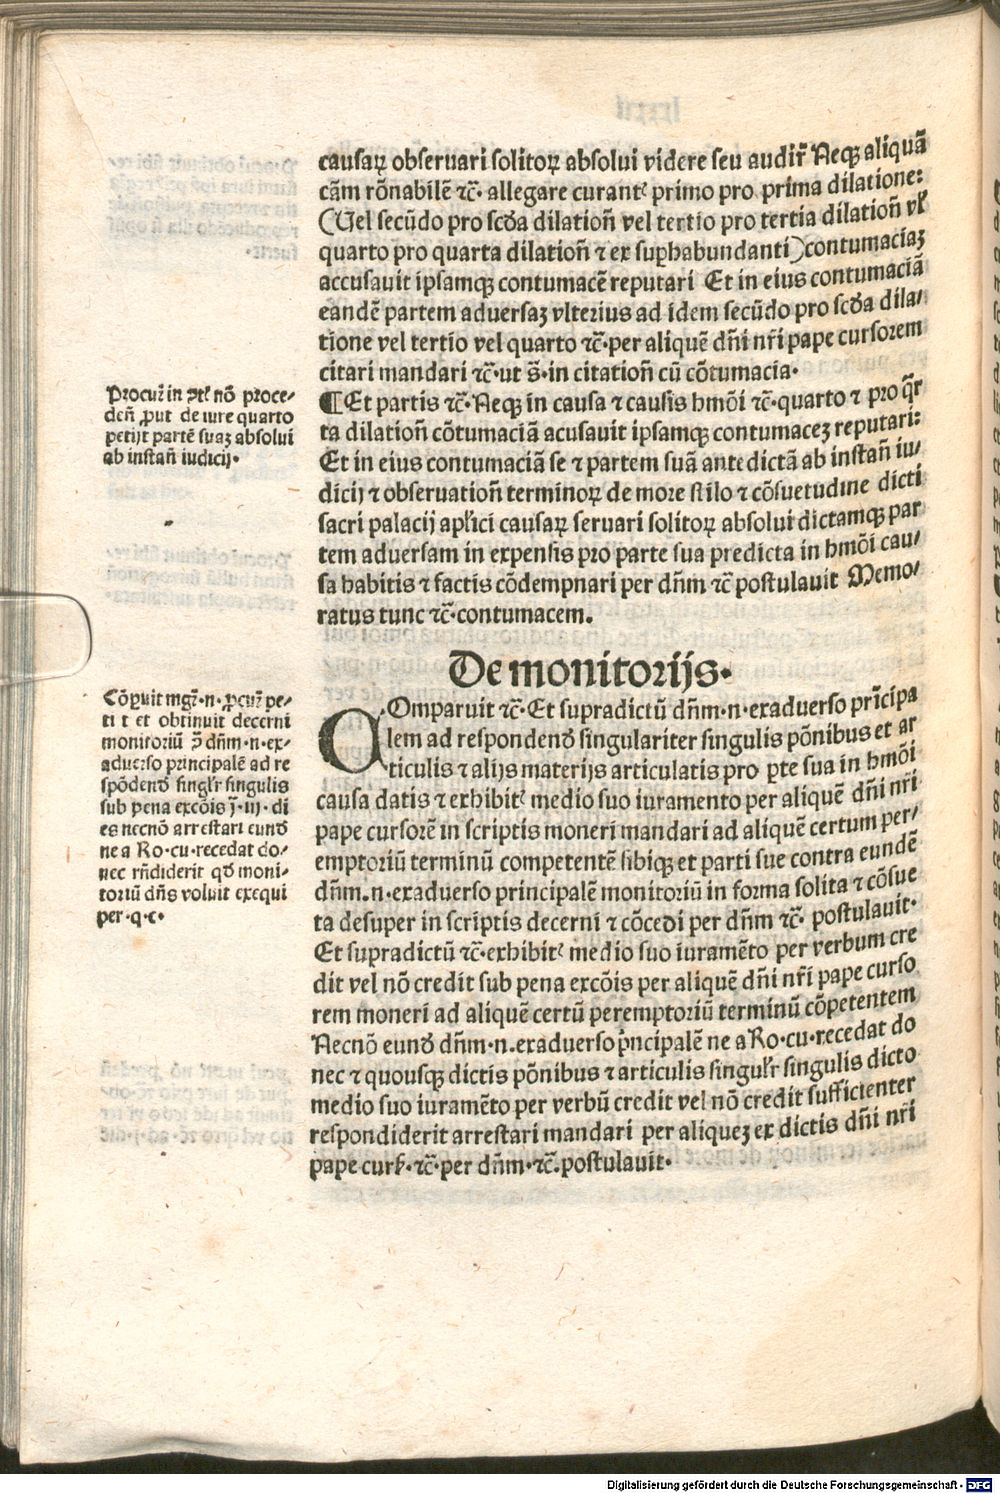 causaꝝ obseruari solitoꝝ absolui videre seu audir̄ Neqꝫ aliquā
cām rōnabilē ⁊c̄· allegare curant᷑ primo pro prima dilatione:
(Uel secūdo pro scd̄a dilatioñ vel tertio pro tertia dilatioñ vl̓
quarto pro quarta dilatioñ ⁊ ex suꝑhabundanti) contumaciaꝫ
accusauit ipsamqꝫ contumacē reputari Et in eius contumaciā
eandē partem aduersaꝫ vlterius ad idem secūdo pro scd̄a dila/
tione vel tertio vel quarto ⁊c̄·per aliquē dn̄i nr̄i pape cursorem
citari mandari ⁊c̄·ut s̄·in citatioñ cū cōtumacia·
¶Et partis ⁊c̄·Neqꝫ in causa ⁊ causis hmōi ⁊c̄·quarto ⁊ pro q̄r
ta dilatioñ cōtumaciā acusauit ipsamqꝫ contumaceꝫ reputari:
Et in eius contumaciā se ⁊ partem suā antedictā ab instañ iu/
dicij ⁊ obseruatioñ terminoꝝ de more stilo ⁊ cōsuetudine dicti
sacri palacij apl̓ici causaꝝ seruari solitoꝝ absolui dictamqꝫ par
tem aduersam in expensis pro parte sua predicta in hmōi cau/
sa habitis ⁊ factis cōdempnari per dn̄m ⁊c̄ postulauit Memo/
ratus tunc ⁊c̄·contumacem.
Procur᷑ in ꝑt᷑ nō proce/
deñ ꝓut de iure quarto
petijt partē suaꝫ absolui
ab instañ iudicij·
De monitorijs·
COmparuit ⁊c̄·Et supradictū dn̄m·n·exaduerso prīcipa
lem ad respondend̄ singulariter singulis pōnibus et ar
ticulis ⁊ alijs materijs articulatis pro ꝑte sua in hmōi
causa datis ⁊ exhibit᷑ medio suo iuramento per aliquē dn̄i nr̄i
pape cursorē in scriptis moneri mandari ad aliquē certum per/
emptoriū terminū competentē sibiqꝫ et parti sue contra eundē
dn̄m.n·exaduerso principalē monitoriū in forma solita ⁊ cōsue
ta desuper in scriptis decerni ⁊ cōcedi per dn̄m ⁊c̄· postulauit·
Et supradictū ⁊c̄·exhibit᷑ medio suo iuramēto per verbum cre
dit vel nō credit sub pena excōis per aliquē dn̄i nr̄i pape curso
rem moneri ad aliquē certū peremptoriū terminū cōpetentem
Necnō eund̄ dn̄m·n.exaduerso pͥncipalē ne a Ro·cu·recedat do
nec ⁊ quousqꝫ dictis pōnibus ⁊ articulis singul̓r singulis dicto
medio suo iuramēto per verbū credit vel nō credit sufficienter
respondiderit arrestari mandari per aliqueꝫ ex dictis dn̄i nr̄i
pape curß·⁊c̄·per dn̄m·⁊c̄.postulauit·
Cōꝑuit mgr̄·n·ꝓcur᷑ pe/
tijt et obtinuit decerni
monitoriū ꝯ̄ dn̄m·n·ex/
aduerso principalē ad re
spōdend̄ singl̓r singulis
sub pena excōis j̄·iij·di
es necnō arrestari eund̄
ne a Ro·cu·recedat do/
nec rn̄diderit qd̄ moni/
toriū dn̄s voluit exequi
per·q·c·
Digitalisierung gefördert durch die Deutsche Forschungsgemeinschaft · DFG